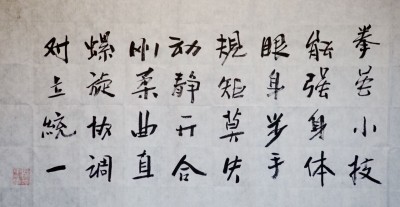 拳虽小技
能强身体
眼身步手
規矩莫失
动静开合
刚柔曲直
螺旋协调
对立統一